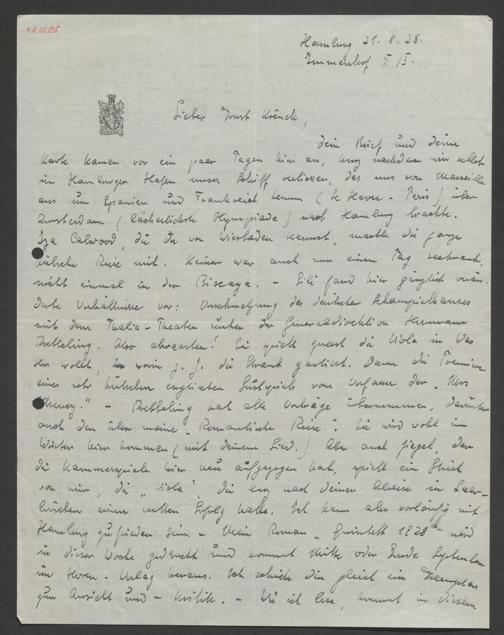 Hamburg 21. 8. 28.
Immenhof 5/I.
Lieber Ernst Krenek,
Dein Brief und Deine
Karte kamen vor ein paar Tagen hier an, kurz nachdem wir selbst
im Hamburger Hafen unser Schiff verliessen, das uns von Marseille
aus um Spanien und Frankreich herum (Le Havre - Paris) über
Amsterdam (lächerlichste Olympiade) nach Hamburg brachte.
Calwood, die Du von Wiesbaden kennst, machte die ganze
hübsche Reise mit. Keiner war auch nur einen Tag seekrank,
nicht einmal in der Biscaya. - Lili fand hier gänzlich verän-
derte Verhältnisse vor: Verschmelzung des deutschen Schauspielhauses
mit dem Thalia-Theater unter der Generaldirektion Hermann
Röbbeling. Also abwarten! Sie spielt zuerst die Viola in Was
Ihr wollt, worin z. Z. die Straub gastiert. Dann die Premiere
eines sehr hübschen englischen Lustspiels vom Verfasser der "Mrs
Cheney." - Röbbeling hat alle Verträge übernommen, darunter
auch den über meine "Romantische Reise". Sie wird wohl im
Winter hier kommen (mit Deinem Lied.) Aber auch Ziegel, der
die Kammerspiele hier neu aufgezogen hat, spielt ein Stück
von mir, die "Viola", die kurz nach Deiner Abreise in Saar-
brücken einen netten Erfolg hatte. Ich kann also vorläufig mit
Hamburg zufrieden sein. - Mein Roman "Quintett 1828" wird
in dieser Woche gedruckt und kommt Mitte oder Ende September
im Horen-Verlag heraus. Ich schicke Dir gleich ein Exemplar
zur Ansicht und - Kritik. - Wie ich lese, kommt in diesem